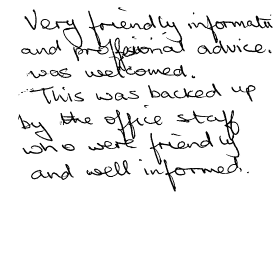 Very friendly informati
and proffesional advice.
was welcomed.
This was backed up
by the office staff
who were friendly
and well informed.